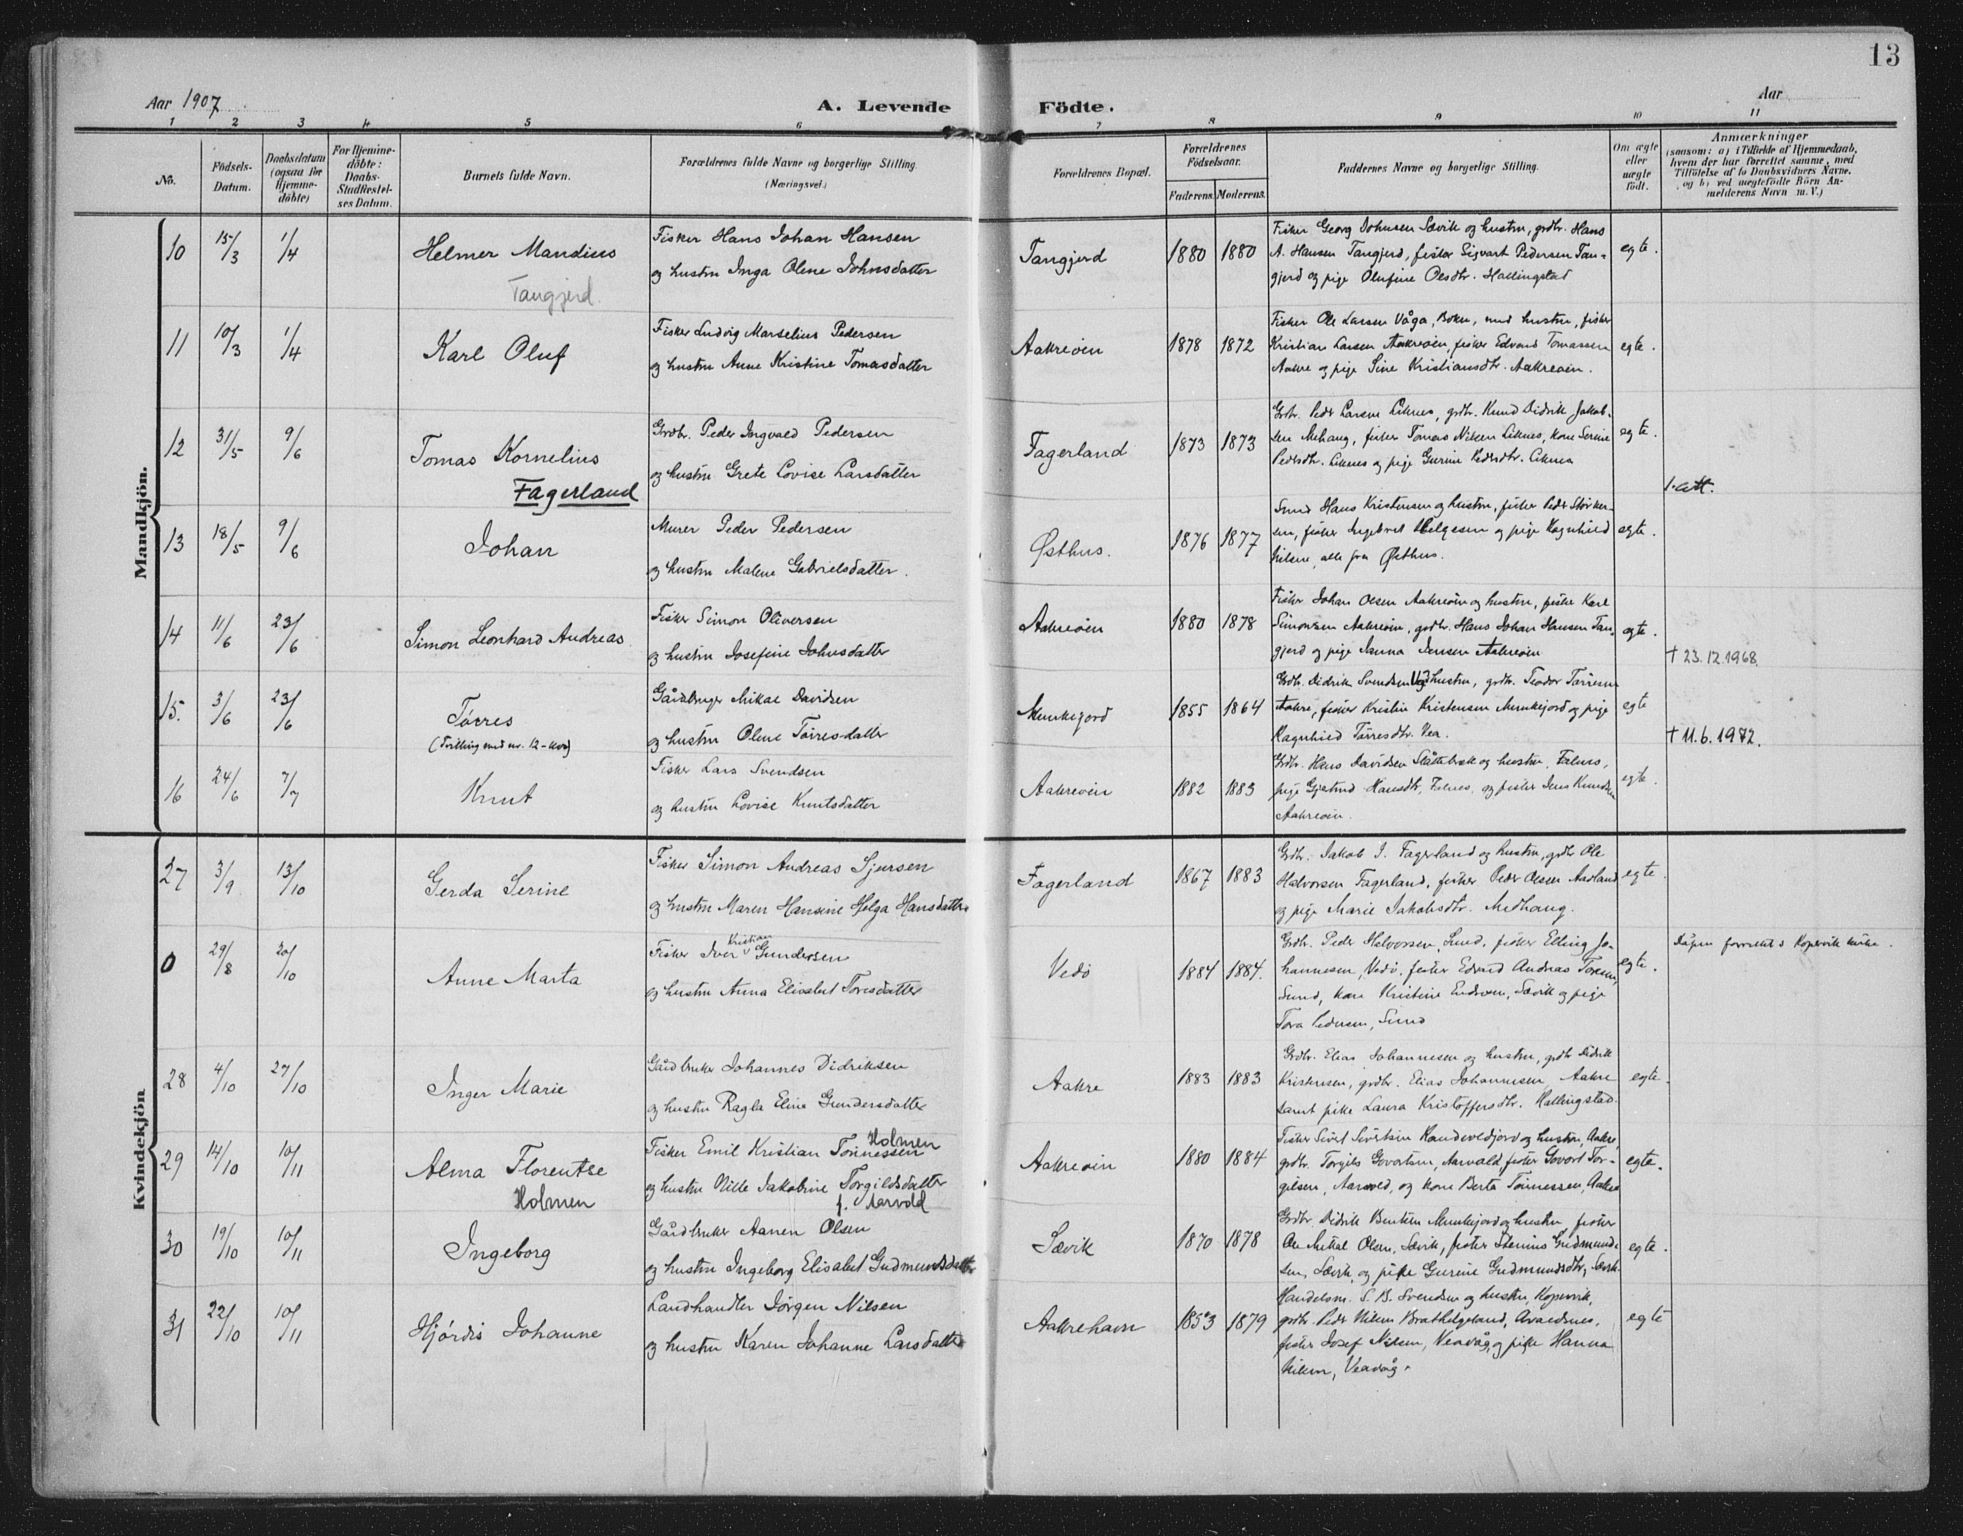 13
Aar 1907
A. Levende Födte.
Aar
1 2 3 4 5 6 7 8 9 10 11
No.
Födsels-Datum.
Daabsdatum (ogsaa for Hjemmedöbte)
For Hjemmedöbte: Daabs-Stadfæstelses Datum.
Barnets fulde Navn.
Forældrenes fulde Navne og borgerlige Stilling. (Næringsvei.)
Forældrenes Bopæl.
Forældrenes Födselsaar.
Faderens Moderens.
Faddernes Navne og borgerlige Stilling.
Om ægte eller uægte födt.
Anmærkninger
(saasom: a) i Tilfælde af Hjemmedaab, hvem der har forrettet samme, med Tilföielse af to Daabsvidners Navne, og b) ved uægtefödte Börn Anmelderens Navn m. V.)
Mandkjön.
10 15/3 1/4 Helmer Mandius
Tangjerd
Fisker Hans Johan Hansen
og hustru Inga Olene Johnsdatter
Tangjerd 1880 1880
Fisker Georg Johnsen Sævik og hustru, grdbr. Hans
A. Hansen Tangjerd, fisker Sigvart Pedersen Tan-
gjerd og pige Olufine Olsdtr. Hallingstad
egte.
11 10/3 1/4 Karl Oluf
Fisker Ludvig Marselius Pedersen
og hustru Anne Kristine Tomasdatter
Aakreøen 1878 1872
Fisker Ole Larsen Våga, Bokn, med hustru, fisker
Kristian Larsen Aakreøen, fisker Edvard Tomassen
Aakre og pige Sine Kristiansdtr. Aakreøen.
egte.
12 31/5 9/6 Tomas Kornelius
Fagerland
Grdbr. Peder Ingvald Pedersen
og hustru Grete Lovise Larsdatter
Fagerland 1873 1873
Grbr. Peder Larsen Liknes, grdbr. Knud Didrik Jakob-
sen Mehaug, fisker Tomas Nilsen Liknes, kone Serine
Pedersdtr. Liknes og pige Gurine Pedersdtr. Liknes
egte.
1. att.
13 18/5 9/6 Johan
Murer Peder Pedersen
og hustru Malene Gabrielsdatter.
Østhus. 1876 1877
Smed Hans Kristensen og hustru, fisker Peder Størker-
sen, fisker Ingebret Helgesen og pige Ragnhild
Nilsen, alle fra Østhus.
egte.
14 11/6 23/6 Simon Leonhard Andreas
Fisker Simon Oliversen
og hustru Josefine Johnsdatter
Aakreøen 1880 1878
Fisker Johan Olsen Aakreøen og hustru, fisker Karl
Simonsen Aakreøen, grdbr. Hans Johan Hansen Tan-
gjerd og pige Janna Jensen Aakreøen
egte.
† 23.12.1968.
15. 3/6 23/6 Tørres
(Tvilling med nr. 12 - kvk)
Gårdbruger Mikal Davidsen
og hustru Olene Tørresdatter
Munkejord 1855 1864
Grdbr. Didrik Svendsen Vea og hustru, grdbr. Teodor Tørresen
Aakre, fisker Kristin Kristensen Munkejord og pige
Ragnhild Tørresdtr. Vea.
egte
† 11.6.1972.
16 24/6 7/7 Knut
Fisker Lars Svendsen
og hustru Lovise Knutsdatter
Aakreøen 1882 1883
Grdbr. Hans Davidsen Slåttebrek og hustru, Falnes,
pige Gjertrud Hansdtr., Falnes, og fisker Jens Knudsen
Aakreøen.
egte.
Kvindekjön
27 3/9 13/10 Gerda Serine
Fisker Simon Andreas Sjursen
og hustru Maren Hansine Helga Hansdatter
Fagerland 1867 1883
Grdbr. Jakob J. Fagerland og hustru, grdbr. Ole
Halvorsen Fagerland, fisker Peder Olsen Aadland
og pige Marie Jakobsdtr. Midhaug.
egte.
0 29/8 20/10 Anne Marta
Fisker Iver Kristian Gundersen
og hustru Anna Elisabet Toresdatter
Vedø 1884 1884.
Grdbr. Peder Halvorsen, Sund, fisker Elling Jo-
hannesen, Vedø, fisker Edvard Andreas Toresen,
Sund, kone Kristine Endresen, Sævik og pige
Tora Pedersen, Sund
egte.
Dåpen forrettet i Kopervik kirke.
28 4/10 27/10 Inger Marie
Gårdbruker Johannes Didriksen
og hustru Ragla Eline Gundersdatter
Aakre 1883 1883
Grdbr. Elias Johannesen og hustru, grdbr. Didrik
Kristensen, grdbr. Elias Johannesen, Aakre
samt pike Laura Kristoffersdtr. Hallingstad.
egte.
29 14/10 10/11 Alma Florentse
Holmen
Fisker Emil Kristian Tønnessen Holmen
og hustru Nille Jakobine Torgildsdatter
f. Aarvold
Aakreøen 1880 1884
Fisker Sivert Sivertsen Hundevedjord og hustru, Aakre,
grdbr. Torgils Govertsen, Aarvold, fisker Govert Tor-
gilsen, Aarvold, og kone Berta Tønnessen, Aakre
egte.
30 19/10 10/11 Ingeborg
Gårdbruker Aanen Olsen
og hustru Ingeborg Elisabet Gudmundsdatter
Sævik 1870 1878
Grdbr. Didrik Bentsen Munkejord og hustru, fisker
Ole Mikal Olsen, Sævik, fisker Stenius Gudmund-
sen, Sævik, og pike Gurine Gudmundsdtr, Sævik.
egte.
31 22/10 10/11 Hjørdis Johanne
Landhandler Jørgen Nilsen
og hustru Karen Johanne Larsdatter
Aakrehavn 1853 1879
Handelsm. S. B. Svendsen og hustru, Kopervik,
grdbr. Peder Nilsen Brathelgeland, Avaldsnes,
fisker Josef Nilsen, Veavåg, og pike Hanna
Nilsen, Veavåg.
egte